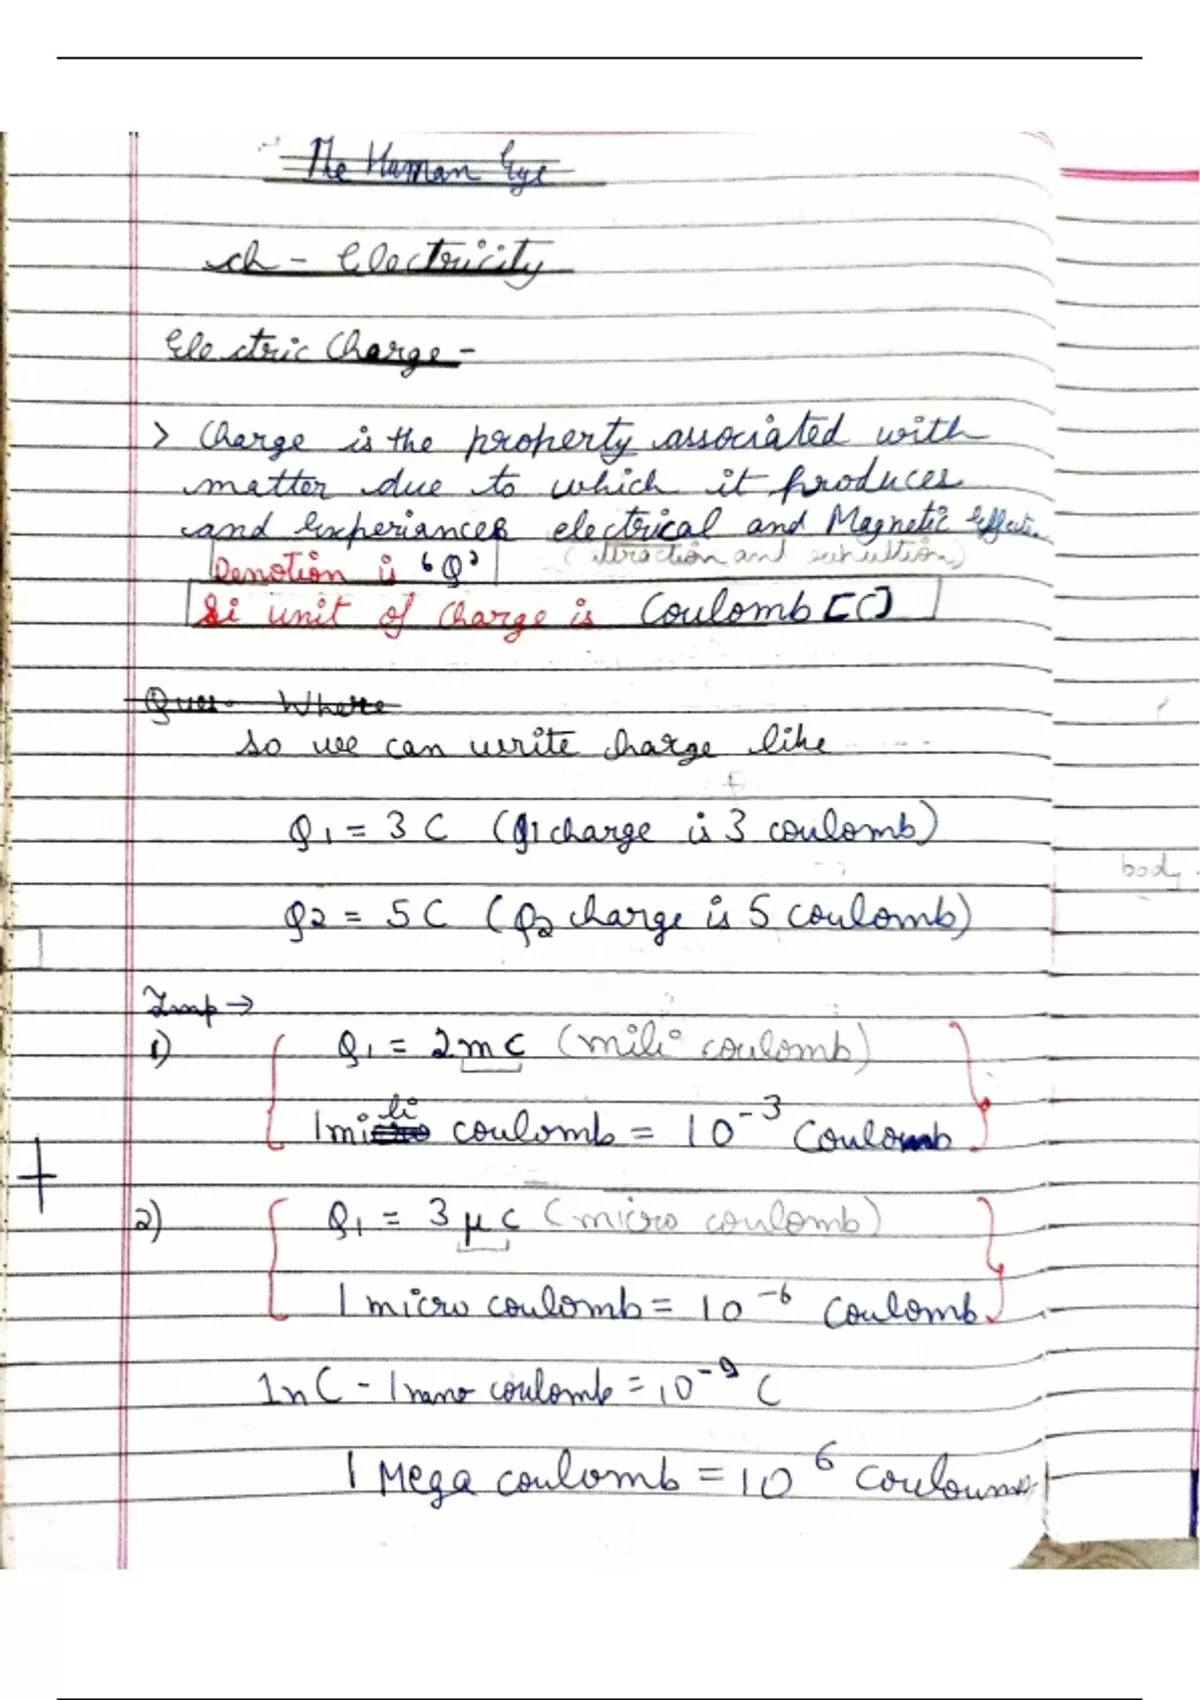 The Human Eye
ch - Electricity
Electric Charge -
> Charge is the property associated with
matter due to which it produces
and experiances electrical and Magnetic Effect
(attraction and
Denotion is 'Q'
Si unit of Charge is Coulomb [C]
Ques. Where
so we can write charge like
Q1 = 3 C (Q1 charge is 3 coulomb)
body.
Q2 = 5 C (Q2 charge is 5 coulomb)
Imp →
1) Q1 = 2 mC (mili coulomb)
1 mili coulomb = 10^-3 Coulomb
2) Q1 = 3 μC (micro coulomb)
1 micro coulomb = 10^-6 Coulomb
1nC - 1 nano coulomb = 10^-9 C
1 Mega coulomb = 10^6